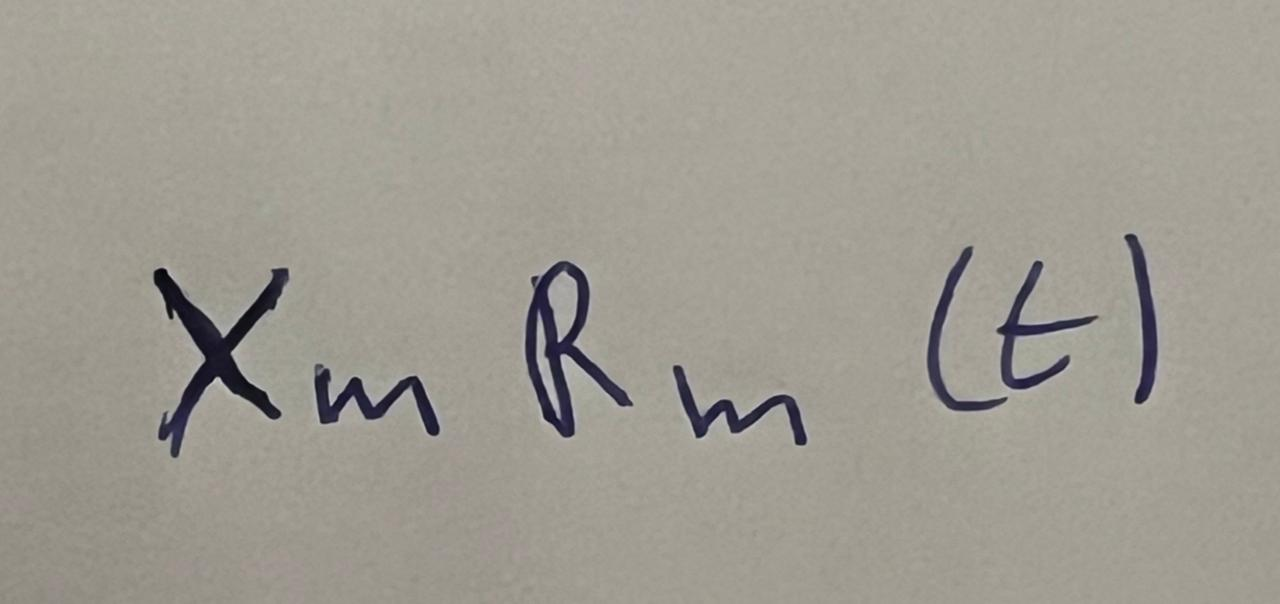 X_m R_m (t)